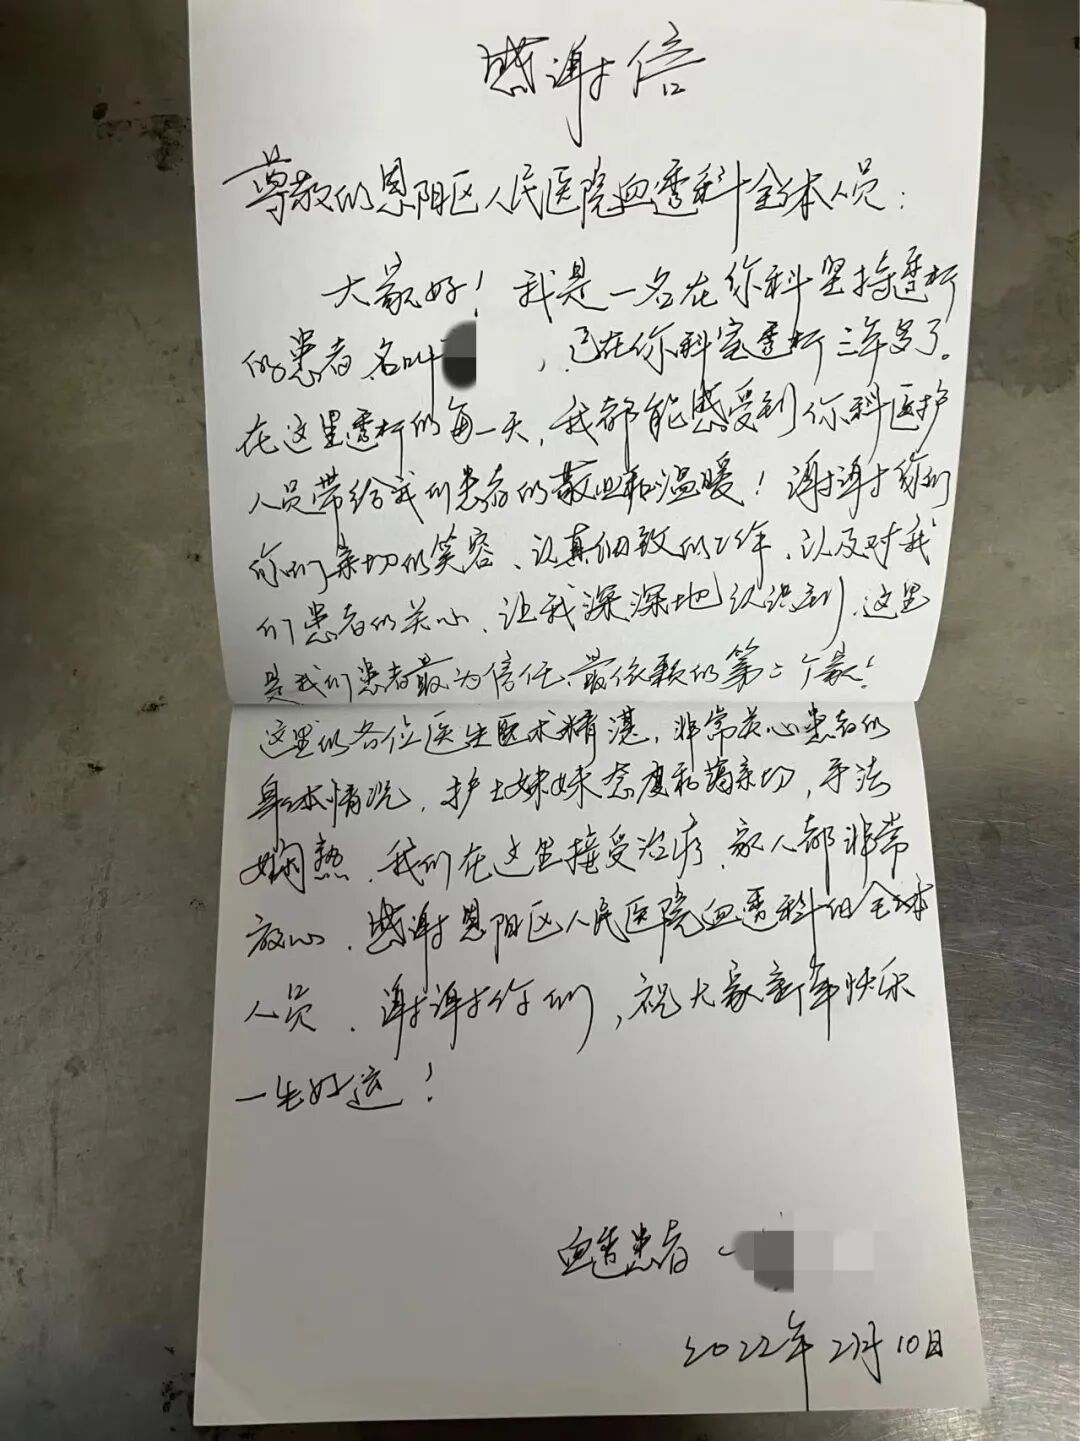 感谢信
尊敬的恩阳区人民医院血透科全体人员：
大家好！我是一名在你科坚持透析
的患者，名叫 ，已在你科室透析三年多了。
在这里透析的每一天，我都能感受到你科医护
人员带给我们患者的敬业和温暖！谢谢你们
你们亲切的笑容、认真细致的工作、以及对我
们患者的关心、让我深深地认识到，这里
是我们患者最为信任、最依赖的第二个家！
这里的各位医生医术精湛，非常关心患者的
身体情况，护士妹妹态度和蔼亲切，手法
娴熟，我们在这里接受治疗，家人都非常
放心，感谢恩阳区人民医院血透科的全体
人员，谢谢你们，祝大家新年快乐
一生好运！
血透患者
2022年2月10日